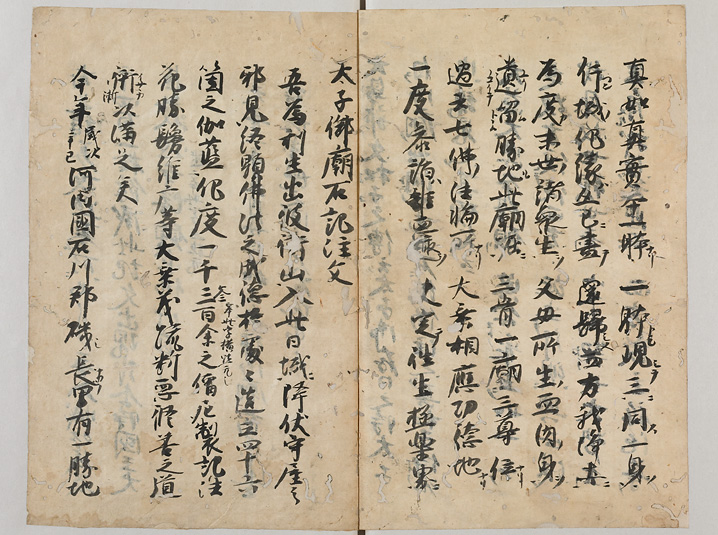 真如真實本一躰 一躰現三同一身
片域化縁亦已盡 還歸西方我淨土
為度末世諸衆生 父母所生血肉身
遺留勝地此廟崛 三骨一廟三尊位
過去七佛法輪所 大乗相應功徳地
一度參詣離惡趣 决定往生極樂界
太子御廟石記注文
吾為利生出彼衡山入此日域降伏守屋之
邪見終顕佛法之威徳於處々造立四十六
箇之伽藍化度一千三百余之僧尼製記法
花勝鬘維广等大乗義疏断悪修善之道
漸以滿足矣
今年歳次辛巳河内國石川郡磯長里有一勝地